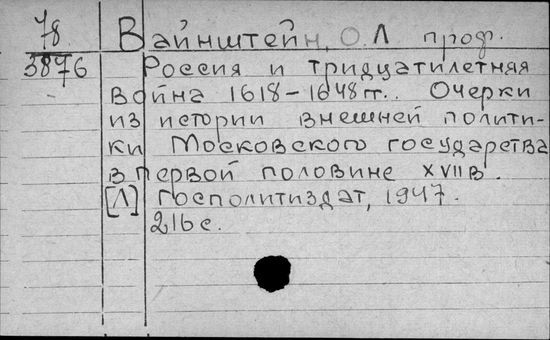 78
3876
Вайнштейн, О.Л проф.
Россия и тридцатилетняя
война 1618-1648 гг.. Очерки
из истории внешней полити-
ки Московского государства
в первой половине XVII в.
[Л] Госполитиздат, 1947.
216 с.